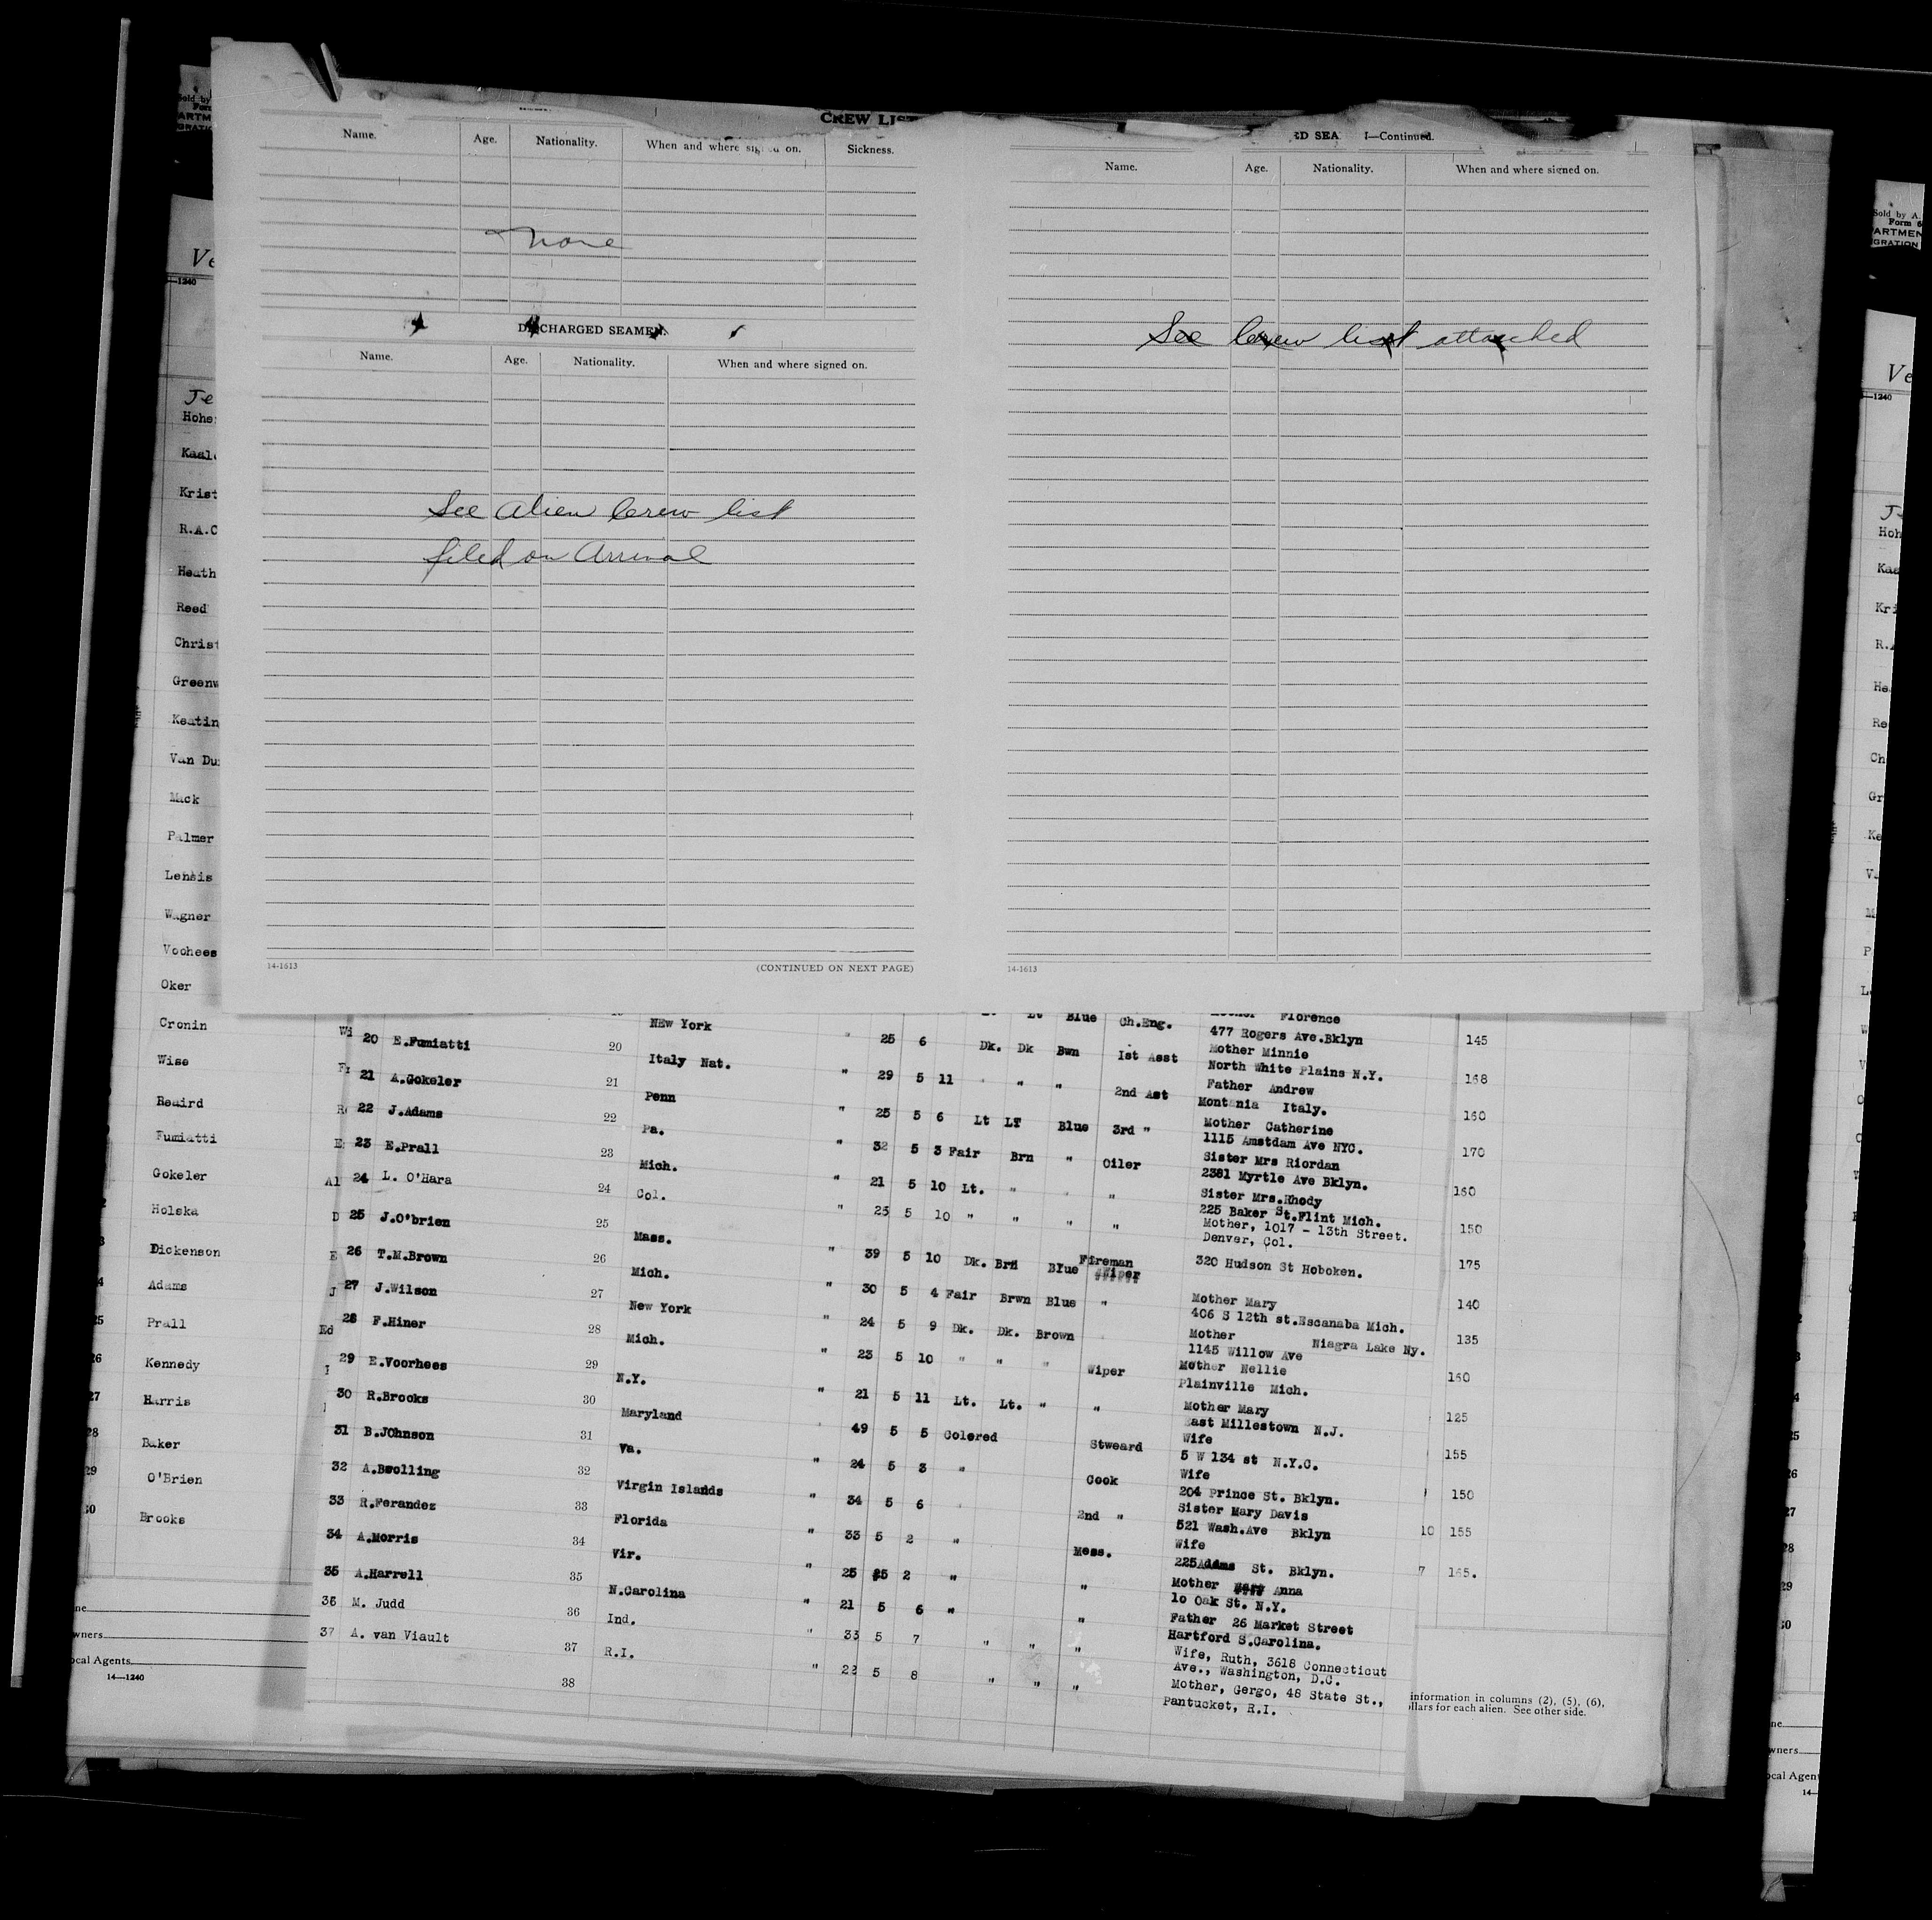 CREW LIST
Name. Age. Nationality. When and where signed on. Sickness.
None
DISCHARGED SEAMEN.
Name. Age. Nationality. When and where signed on.
See Alien Crew list
filed on Arrival
14-1613 (CONTINUED ON NEXT PAGE)
RD SEA —Continued.
Name. Age. Nationality. When and where signed on.
See Crew list attached
14-1613
Sold by
ARTM
Ve
—1240
Je
Hohe
Kaal
Krist
R.A.C
Heath
Reed
Christ
Greenw
Keatin
Van Du
Mack
Palmer
Lehsis
Wagner
Voohees
Oker
Cronin Wi
Wise
Reaird
Fumiatti
Gokeler Al
Holska D
Dickenson E
Adams J
Prall Ed
Kennedy
27 Harris
28 Baker
29 O'Brien
Brooks
wners
ocal Agents
14—1240
NEw York Lt Blue Ch.Eng. Mother Florence
477 Rogers Ave.Bklyn 145
20 E.Fumiatti 20 Italy Nat. " 25 6 Dk. Dk Bwn 1st Asst Mother Minnie
North White Plains N.Y. 168
21 A.Gokeler 21 Penn " 29 5 11 " " " 2nd Ast Father Andrew
Montania Italy. 160
22 J.Adams 22 Pa. " 25 5 6 Lt LT Blue 3rd " Mother Catherine
1115 Amstdam Ave NYC. 170
23 E.Prall 23 Mich. " 32 5 3 Fair Brn " Oiler Sister Mrs Riordan
2381 Myrtle Ave Bklyn. 160
24 L. O'Hara 24 Col. " 21 5 10 Lt. " " " Sister Mrs.Rhody
225 Baker St.Flint Mich. 150
25 J.O'brien 25 Mass. " 25 5 10 " " " " Mother, 1017 - 13th Street.
Denver, Col. 175
26 T.M.Brown 26 Mich. " 39 5 10 Dk. Brn Blue Fireman 320 Hudson St Hoboken.
140
27 J.Wilson 27 New York " 30 5 4 Fair Brwn Blue " Mother Mary
406 S 12th st.Escanaba Mich. 135
28 F.Hiner 28 Mich. " 24 5 9 Dk. Dk. Brown Mother Niagra Lake Ny.
1145 Willow Ave 160
29 E.Voorhees 29 N.Y. " 23 5 10 " " " Wiper Mother Nellie
Plainville Mich. 125
30 R.Brooks 30 Maryland " 21 5 11 Lt. Lt. " " Mother Mary
East Millestown N.J. 155
31 B.JOhnson 31 Va. 49 5 5 Colered Stweard Wife
5 W 134 st N.Y.C. 150
32 A.Bwolling 32 Virgin Islands " 24 5 3 " Cook Wife
204 Prince St. Bklyn. 10 155
33 R.Ferandez 33 Florida " 34 5 6 " 2nd " Sister Mary Davis
521 Wash.Ave Bklyn 7 165.
34 A.Morris 34 Vir. " 33 5 2 " Mess. Wife
225Adams St. Bklyn.
35 A.Harrell 35 N.Carolina " 25 5 2 " " Mother Anna
1o Oak St. N.Y.
36 M. Judd 36 Ind. " 21 5 6 " " Father 26 Market Street
Hartford S.Carolina.
37 A. van Viault 37 R.I. " 33 5 7 " " " Wife, Ruth, 3618 Connecticut
Ave., Washington, D.C.
38 " 22 5 8 " " " Mother, Gergo, 48 State St.,
Pantucket, R.I.
information in columns (2), (5), (6),
ollars for each alien. See other side.
Sold by A.
Form 6
ARTMEN
GRATION
Ve
—1240
Hoh
Kaa
Kri
R.
He
Re
Ch
Gr
Ke
wners
ocal Agent
14—